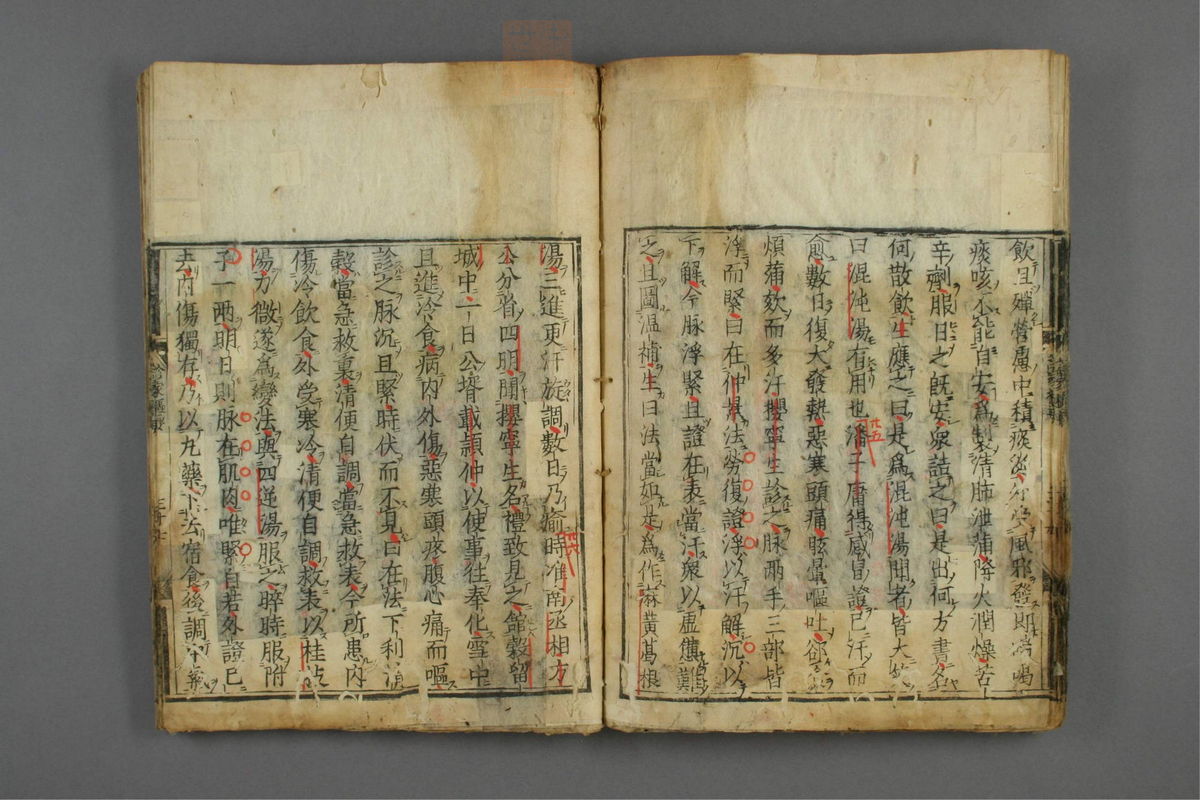 飲且殫營慮中積痰涎外受風邪發則喘喝
痰咳不能自安爲製清肺泄滿降火潤燥苦
辛劑服日之既安衆詰之曰是出何方書名
何散飲生應之曰是爲混沌湯聞者皆大笑
曰混沌湯有用也潘子庸得感冒證已汗而
愈數日復大發熱惡寒頭痛眩暈嘔吐卻
煩滿欬而多汗攖寧生診之脉兩手三部皆
浮而緊曰在仲景法勞復證浮以汗解沉以
下解今脉浮緊且證在表當汗衆以虛憊難
之且圖溫補生曰法當如是爲作麻黄葛根
湯三進更汗旋調數日乃瘉時淮南丞相方
公分省四明聞攖寧生名禮致見之館穀留
城中一日公壻戴穎仲以使事往奉化雪中
且進冷食病內外傷惡寒頭疼腹心痛而嘔
診之脉沉且緊時伏而不見曰在法下利清
穀當急救裏清便自調當急救表今所患內
傷冷飲食外受寒冷清便自調救表以桂枝
湯力微遂爲變法與四逆湯服之晬時服附
子一兩明日則脉在肌肉唯緊自若外證已
去內傷獨存乃以丸藥下去宿食後調中氣
廿五
廿六